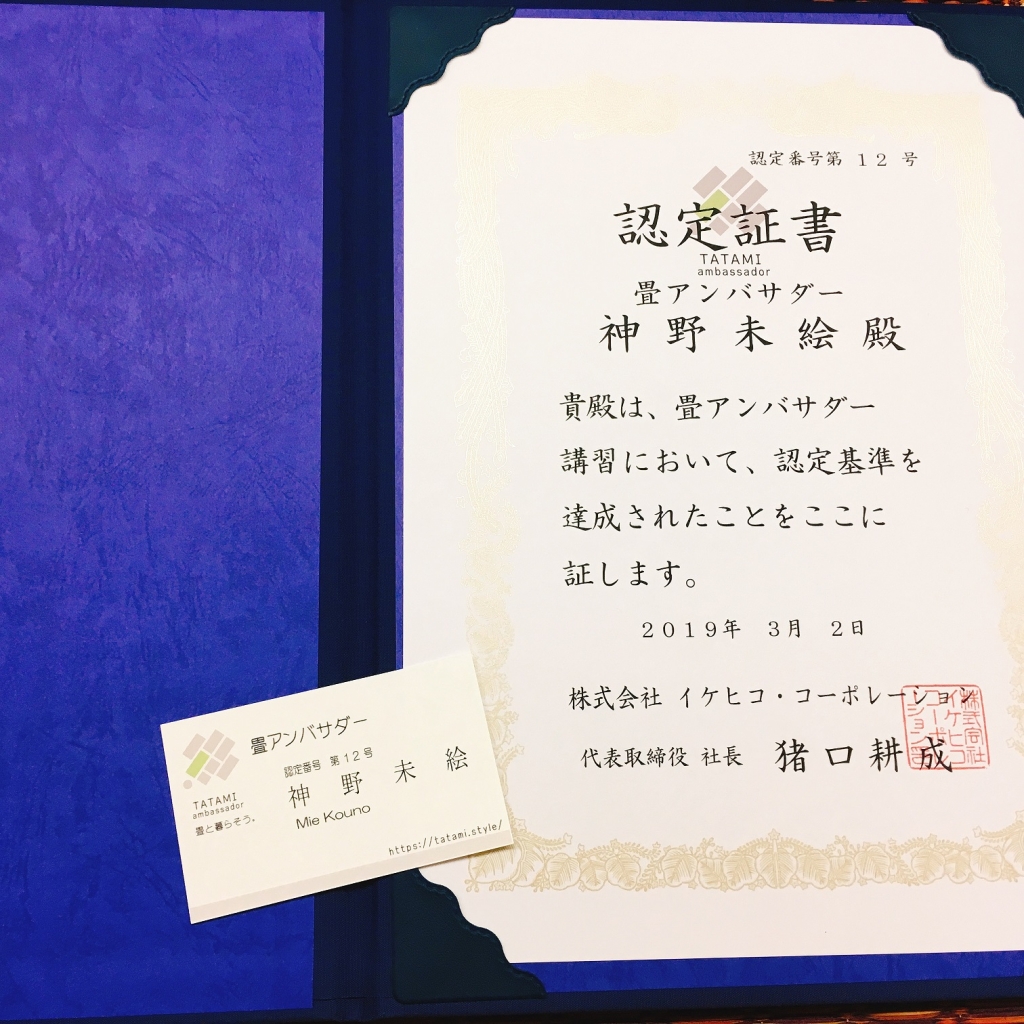 認定番号第 １２ 号
認定証書
TATAMI
ambassador
畳アンバサダー
神野未絵殿
貴殿は、畳アンバサダー
講習において、認定基準を
達成されたことをここに
証します。
２０１９年　３月　２日
株式会社 イケヒコ・コーポレーション
代表取締役 社長　猪口耕成
株式会社
イケヒコ
コーポレー
ション
畳アンバサダー
認定番号 第１２号
神野未絵
Mie Kouno
TATAMI
ambassador
畳と暮らそう。
https://tatami.style/